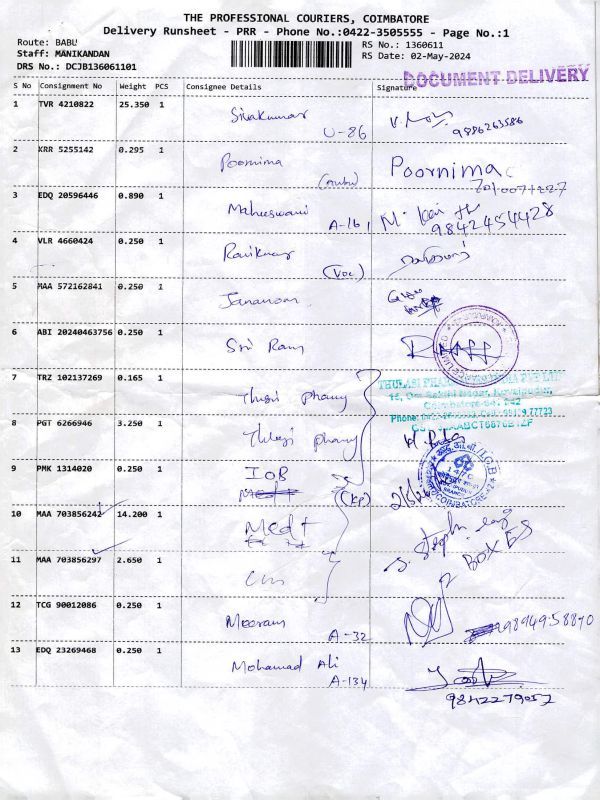 THE PROFESSIONAL COURIERS, COIMBATORE
Delivery Runsheet - PRR - Phone No.:0422-3505555 - Page No.:1
Route: BABU
Staff: MANIKANDAN
DRS No.: DCJB136061101
RS No.: 1360611
RS Date: 02-May-2024
DOCUMENT DELIVERY
S No Consignment No Weight PCS Consignee Details Signature
1 TVR 4210822 25.350 1 Sivakumar
U-86
9886263586
2 KRR 5255142 0.295 1 Poornima Poornima
3 EDQ 20596446 0.890 1 Maheswari
A-161
9842454428
4 VLR 4660424 0.250 1 Ravikumar
(VOC)
5 MAA 572162841 0.250 1
6 ABI 20240463756 0.250 1 Sri Ram
7 TRZ 102137269 0.165 1 Thulsi pharmy
8 PGT 6266946 3.250 1 Thulasi pharmy
9 PMK 1314020 0.250 1 IOB
(KP)
10 MAA 703856242 14.200 1 Med+
11 MAA 703856297 2.650 1
2 BOXES
12 TCG 90012086 0.250 1 Meeram
A-32
9894958890
13 EDQ 23269468 0.250 1 Mohamad Ali
A-134
9842279057